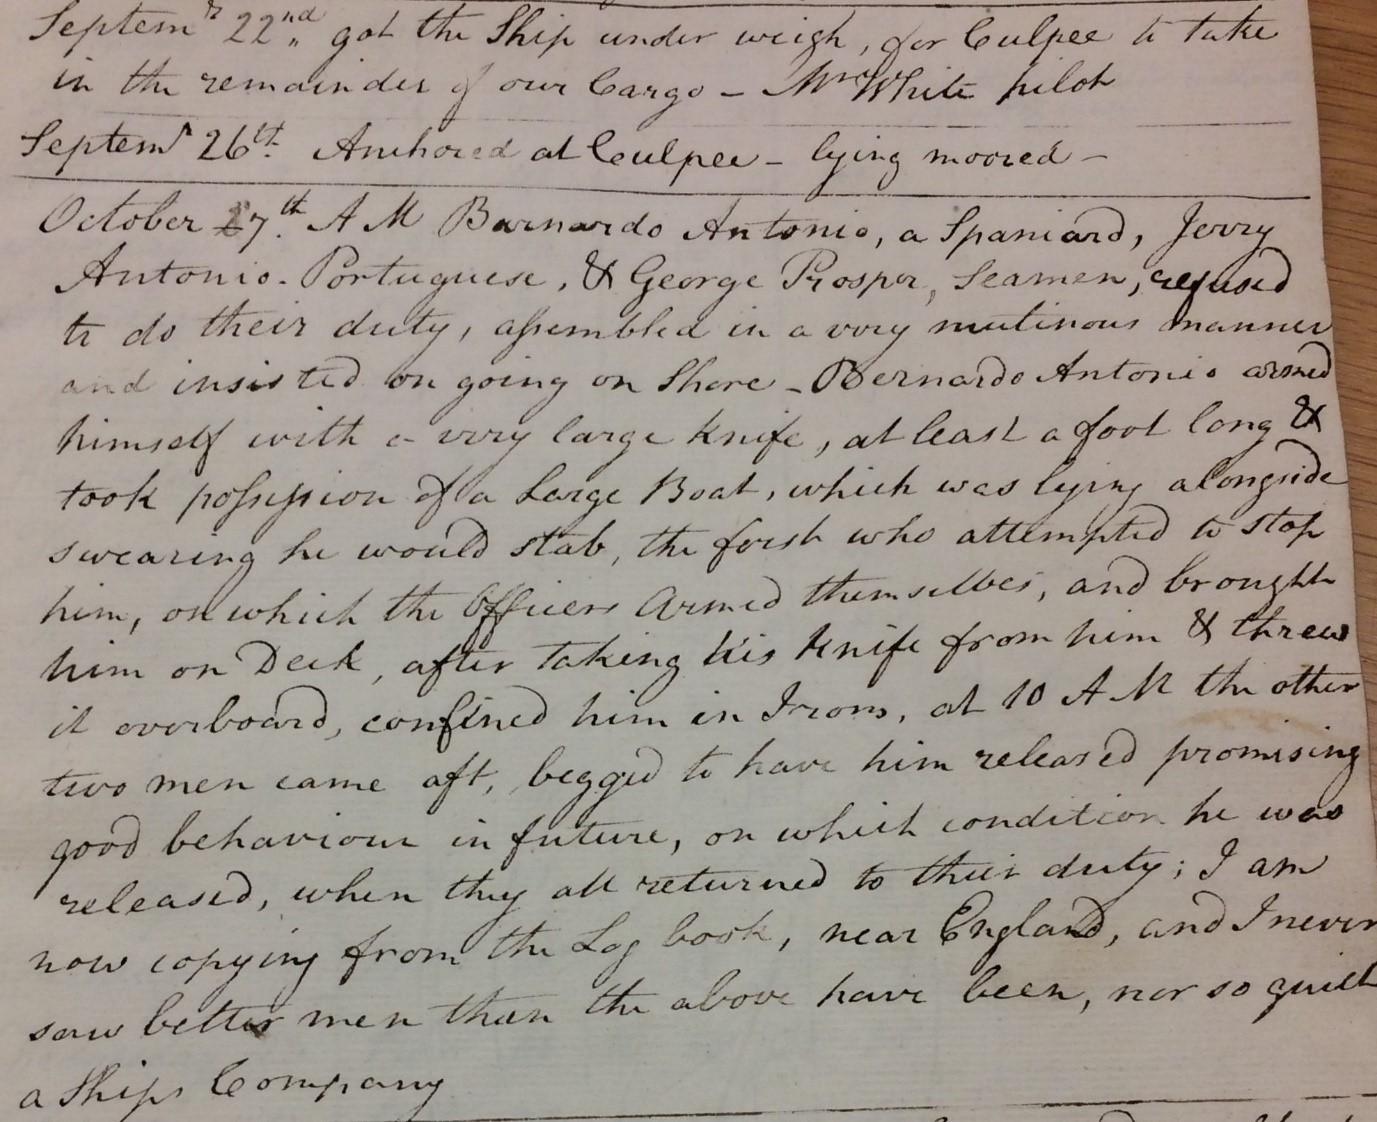 Septemr 22nd got the Ship under weigh, for Culpee to take
in the remainder of our Cargo – Mr White pilot
Septemr 26th. Anchored at Culpee – lying moored –
October 27th. A M Barnardo Antonio, a Spaniard, Jerry
Antonio - Portuguese, & George Prosper, Seamen, refused
to do their duty, assembled in a very mutinous manner
and insisted on going on Shore – Bernardo Antonio armed
himself with a very large knife, at least a foot long &
took possession of a Large Boat, which was lying alongside
swearing he would stab, the first who attempted to stop
him, on which the Officers Armed themselves, and brought
him on Deck, after taking his knife from him & threw
it overboard, confined him in Irons, at 10 A M the other
two men came aft, begged to have him released promising
good behaviour in future, on which condition he was
released, when they all returned to their duty; I am
now copying from the Log book, near England, and I never
saw better men than the above have been, nor so quiet
a Ships Company